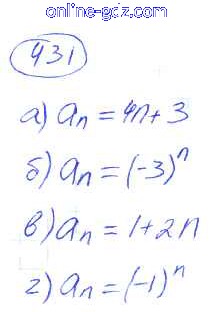 online-gdz.com
431
а) aₙ = 4n + 3
б) aₙ = (-3)ⁿ
в) aₙ = 1 + 2n
г) aₙ = (-1)ⁿ